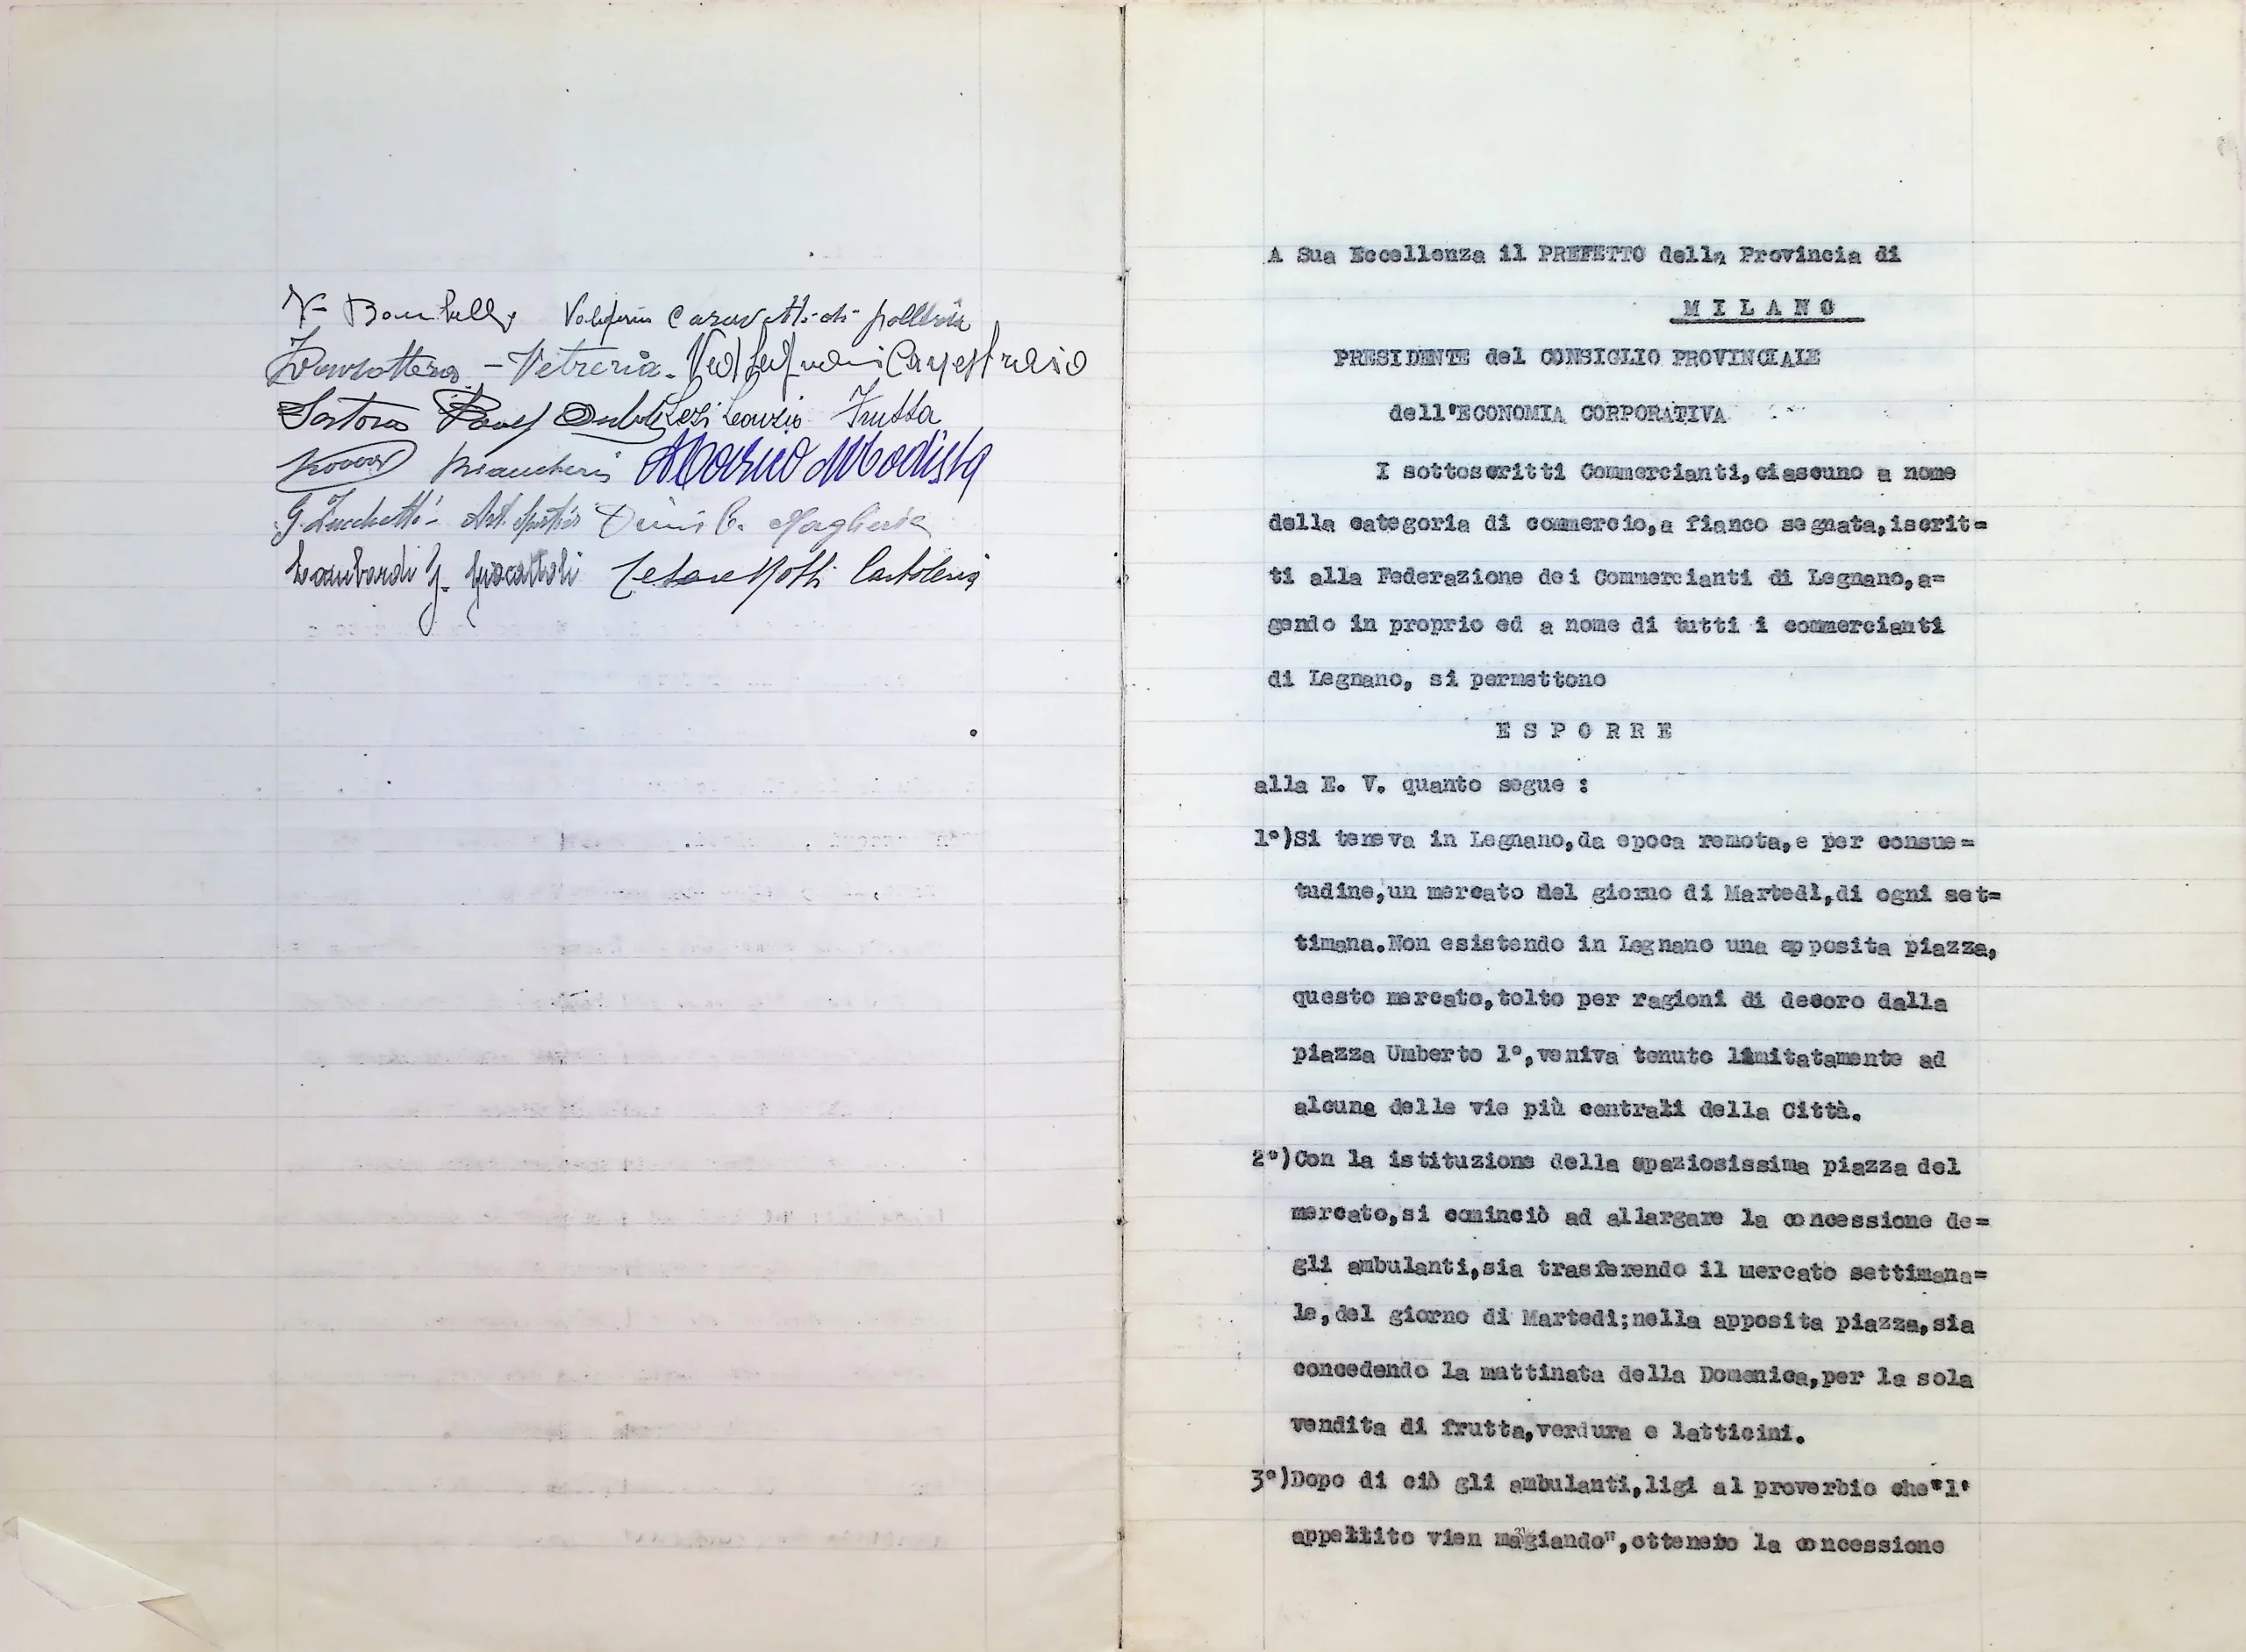 Vetreria
Frutta
G. Zucchetti
Maglieria
Lombardi G. Giocattoli Cartoleria
A Sua Eccellenza il PREFETTO della Provincia di
M I L A N O
PRESIDENTE del CONSIGLIO PROVINCIALE
dell'ECONOMIA CORPORATIVA
I sottoscritti Commercianti,ciascuno a nome
della categoria di commercio,a fianco segnata,iscrit=
ti alla Federazione dei Commercianti di Legnano,a=
gendo in proprio ed a nome di tutti i commercianti
di Legnano, si permettono
E S P O R R E
alla E. V. quanto segue :
1°)Si teneva in Legnano,da epoca remota,e per consue=
tudine,un mercato del giorno di Martedì,di ogni set=
timana.Non esistendo in Legnano una apposita piazza,
questo mercato,tolto per ragioni di decoro dalla
piazza Umberto 1°,veniva tenuto limitatamente ad
alcune delle vie più centrali della Città.
2°)Con la istituzione della spaziosissima piazza del
mercato,si cominciò ad allargare la concessione de=
gli ambulanti,sia trasferendo il mercato settimana=
le,del giorno di Martedì;nella apposita piazza,sia
concedendo la mattinata della Domenica,per la sola
vendita di frutta,verdura e latticini.
3°)Dopo di ciò gli ambulanti,ligi al proverbio che"l'
appetito vien mangiando",ottenero la concessione